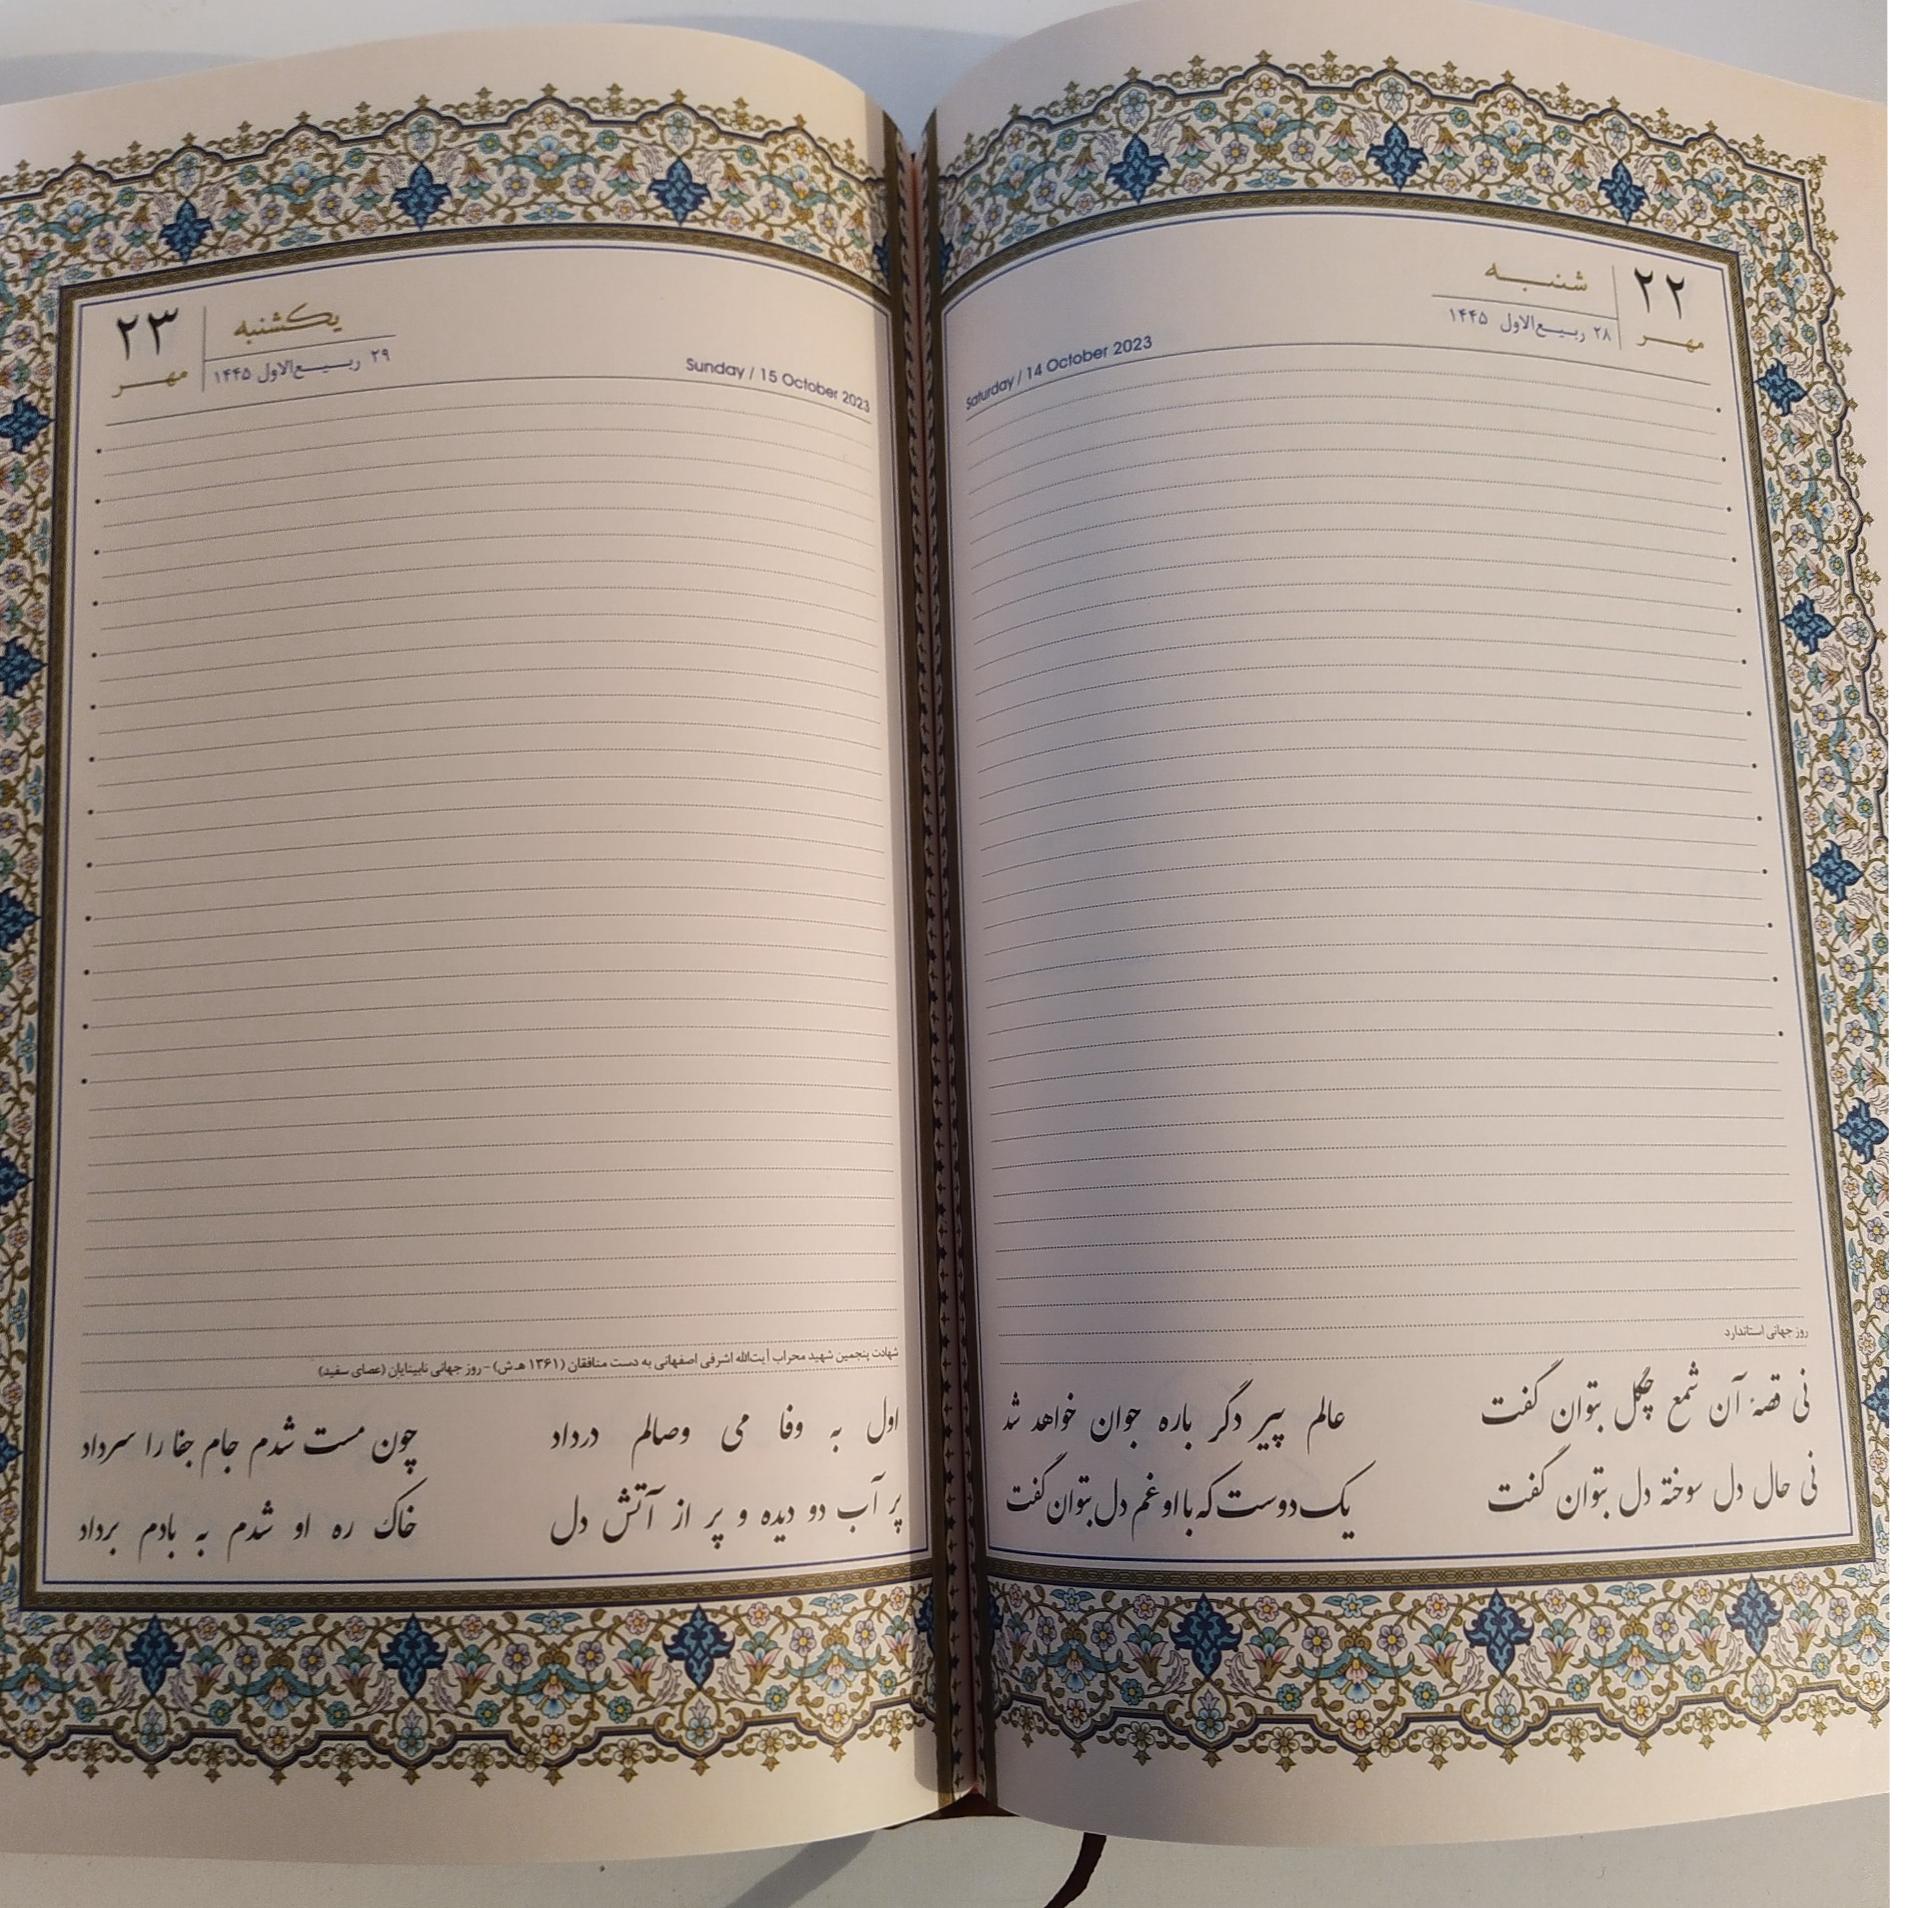 ۲۲
مهر
شنبه
۲۸ ربیع‌الاول ۱۴۴۵
Saturday / 14 October 2023
روز جهانی استاندارد
نی قصهٔ آن شمع چگل بتوان گفت
عالم پیر دگر باره جوان خواهد شد
نی حال دل سوخته دل بتوان گفت
یک دوست که با او غم دل بتوان گفت
۲۳
مهر
یکشنبه
۲۹ ربیع‌الاول ۱۴۴۵
Sunday / 15 October 2023
شهادت پنجمین شهید محراب آیت‌الله اشرفی اصفهانی به دست منافقان (۱۳۶۱ هـ.ش) - روز جهانی نابینایان (عصای سفید)
اول به وفا می وصالم درداد
چون مست شدم جام جفا را سرداد
پر آب دو دیده و پر از آتش دل
خاک ره او شدم به بادم برداد